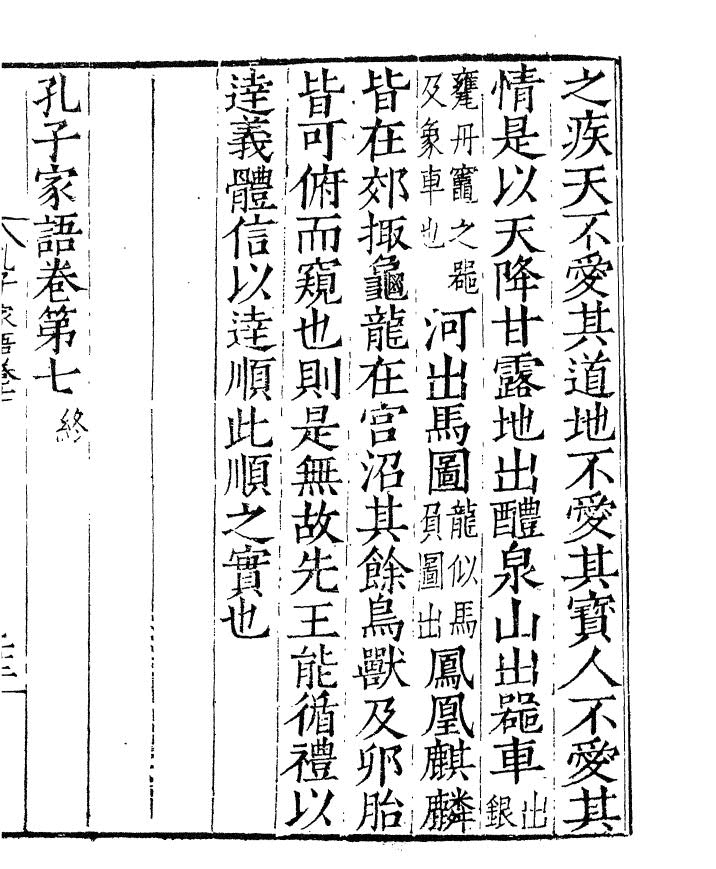 之疾天不愛其道地不愛其寳人不愛其
情是以天降甘露地出醴泉山出噐車出銀
甕丹竈之噐及象車也河出馬圖龍似馬負圖出鳳凰麒麟
皆在郊掫龜龍在宫沼其餘鳥獸及卵胎
皆可俯而窺也則是無故先王能循禮以
逹義體信以逹順此順之實也
孔子家語卷第七終